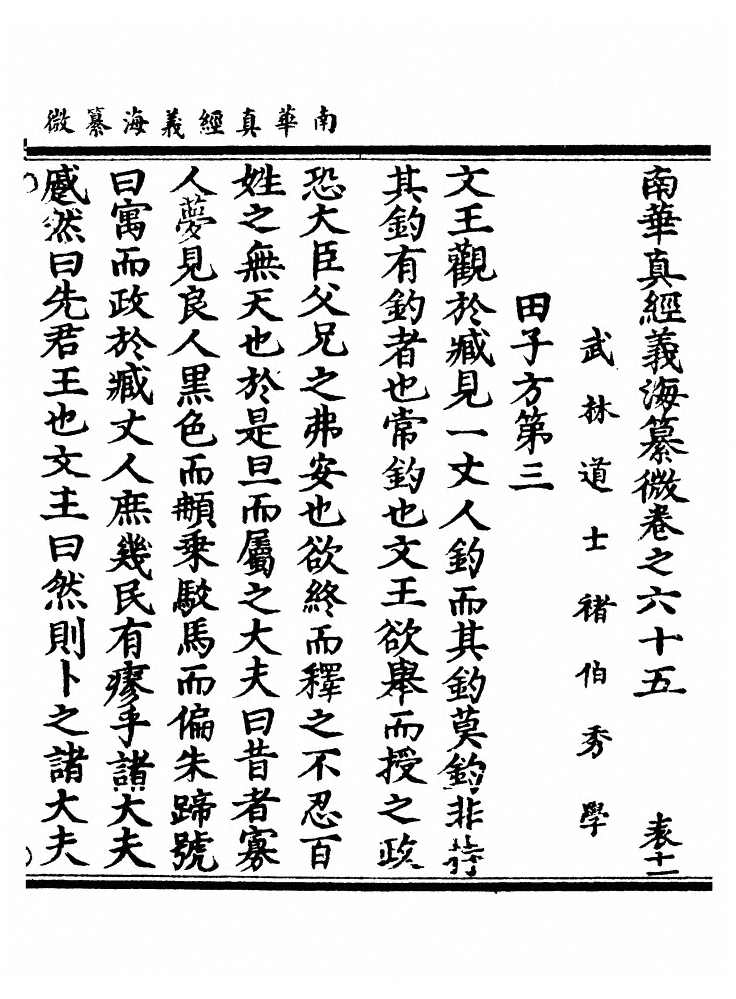 南華真經義海纂微
南華真經義海纂微卷之六十五 表十一
武林道士褚伯秀學
田子方第三
文王觀於臧見一丈人釣而其釣莫釣非持
其釣有釣者也常釣也文王欲舉而授之政
恐大臣父兄之弗安也欲終而釋之不忍百
姓之無天也於是旦而屬之大夫曰昔者寡
人夢見良人黑色而䫇乗駁馬而偏朱蹄號
曰寓而政於臧丈人庶幾民有瘳乎諸大夫
慼然曰先君王也文王曰然則卜之諸大夫